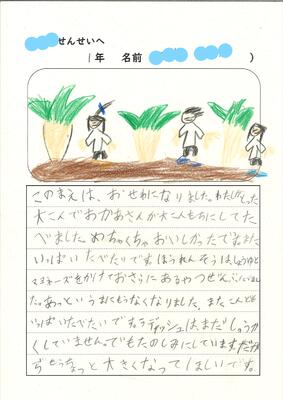 せんせいへ
1年 名前 )
このまえは、おせわになりました。わたしがとった
大こんでおかあさんが大こんもちにしてた
べました。めちゃくちゃおいしかったです。また
いっぱいたべたいです。ほうれんそうはしょうゆと
マヨネーズをかけておさらにあるやつぜんぶ
た。あっというまにもうなくなりました。またこんども
いっぱいたべたいです。ラディッシュは、まだしゅうか
くしていません。でもたのしみにしています。だから
もうちょっと大きくなってほしいです。